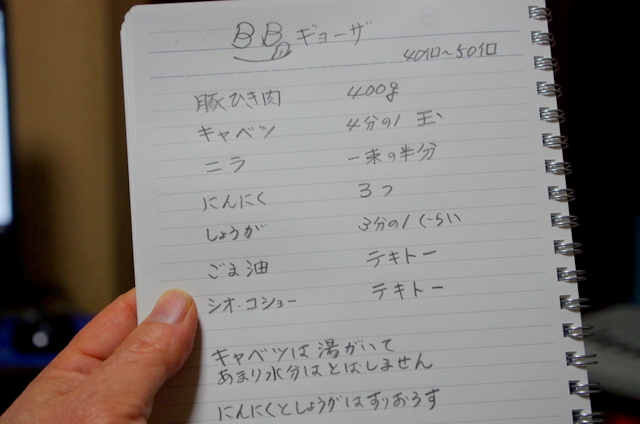 BBギョーザ
40個〜50個
豚ひき肉 400g
キャベツ 4分の1 玉
ニラ 一束の半分
にんにく 3つ
しょうが 3分の1くらい
ごま油 テキトー
シオ・コショー テキトー
キャベツは湯がいて
あまり水分はとばしません
にんにくとしょうがはすりおろす